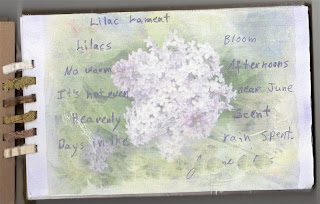 Lilac Lament
Lilacs Bloom
No warm Afternoons
It's not even near June
Heavenly Scent
Days in the rain spent.